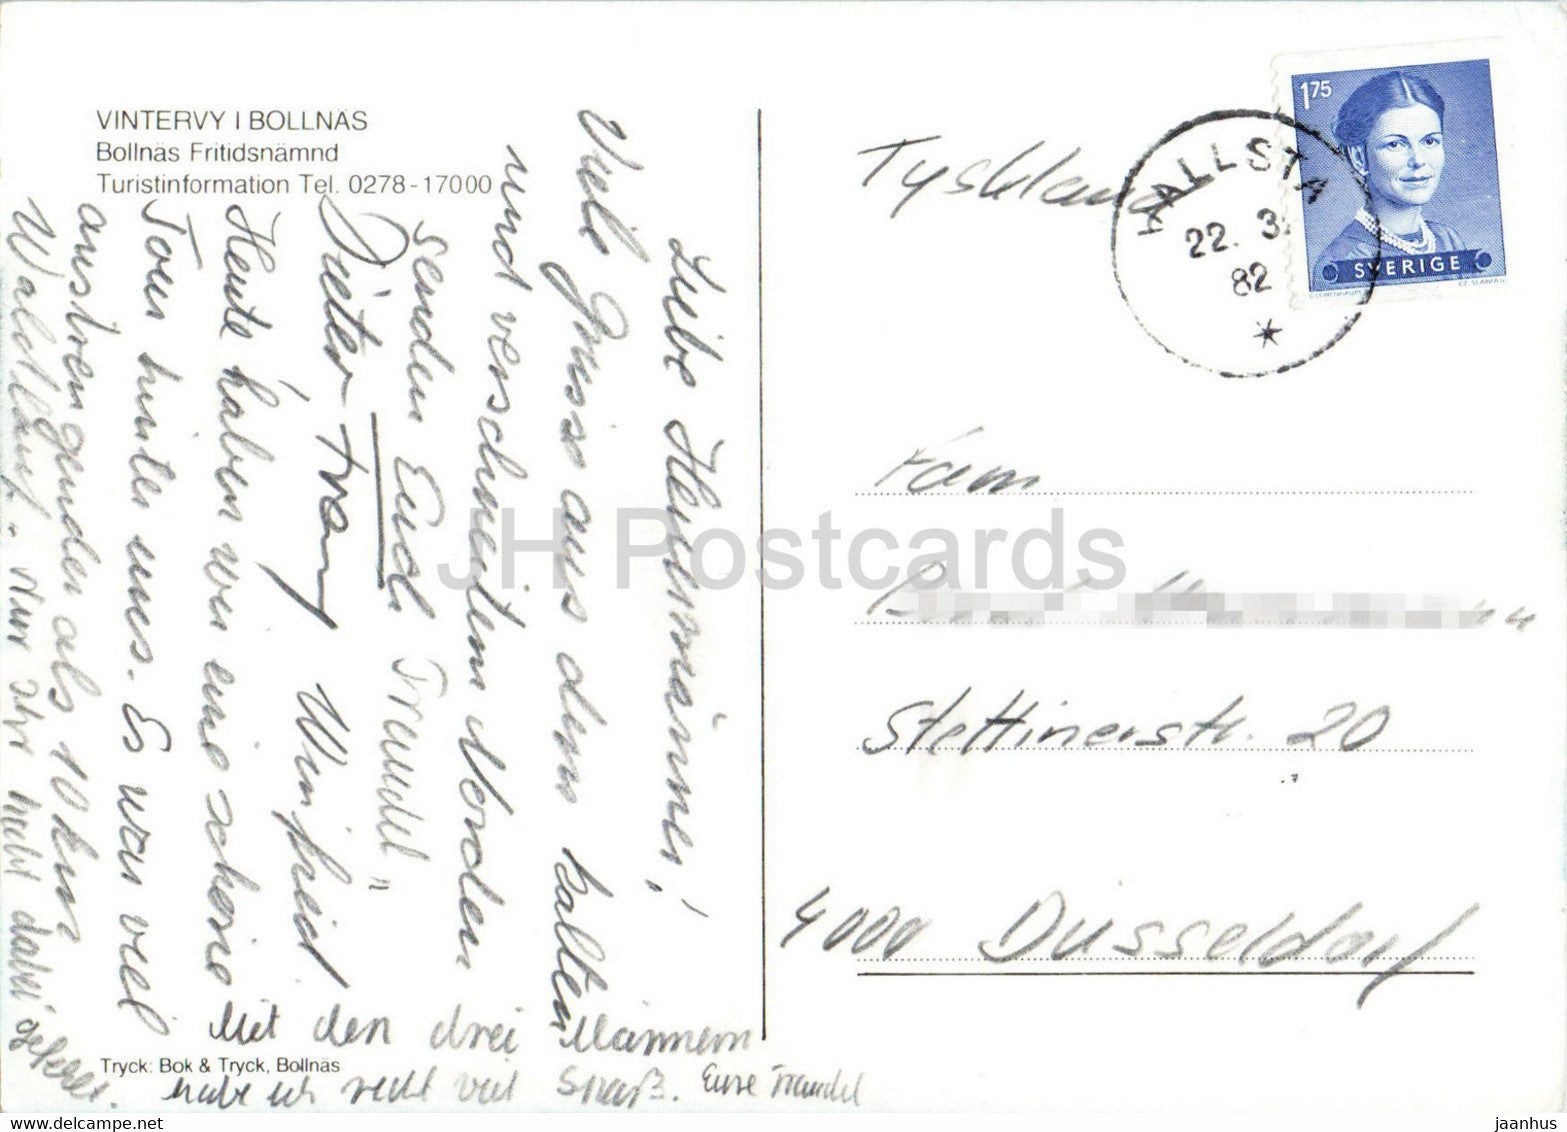 VINTERVY I BOLLNÄS
Bollnäs Fritidsnämnd
Turistinformation Tel. 0278-17000
Liebe Heinemänner!
Viele Grüsse aus dem kalten
und verschneiten Norden
senden Euch Traudel"
Dieter + Winfried
Heute haben wir eine schöne
Tour hinter uns. Es war viel
anstrengender als 10 km
Waldlauf. Nur Ihr habt dabei gefehlt.
Mit den drei Männern
habe ich recht viel Spaß. Eure Traudel
Tryck: Bok & Tryck, Bollnäs
Tyskland
HALLSTA
22. 3.
82
1.75
SVERIGE
CZ. SLANIA SC
Fam
Stettinerstr. 20
4000 Düsseldorf
JH Postcards
www.delcampe.net
jaanhus